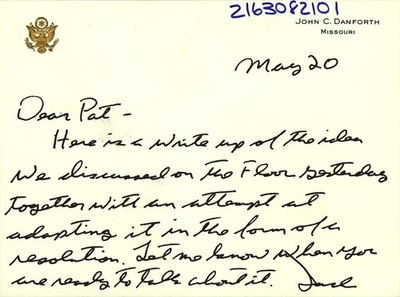 2163082101
JOHN C. DANFORTH
MISSOURI
May 20
Dear Pat -
Here is a write up of the idea
we discussed on the Floor yesterday
together with an attempt at
adapting it in the form of a
resolution. Let me know when you
are ready to talk about it. Jack